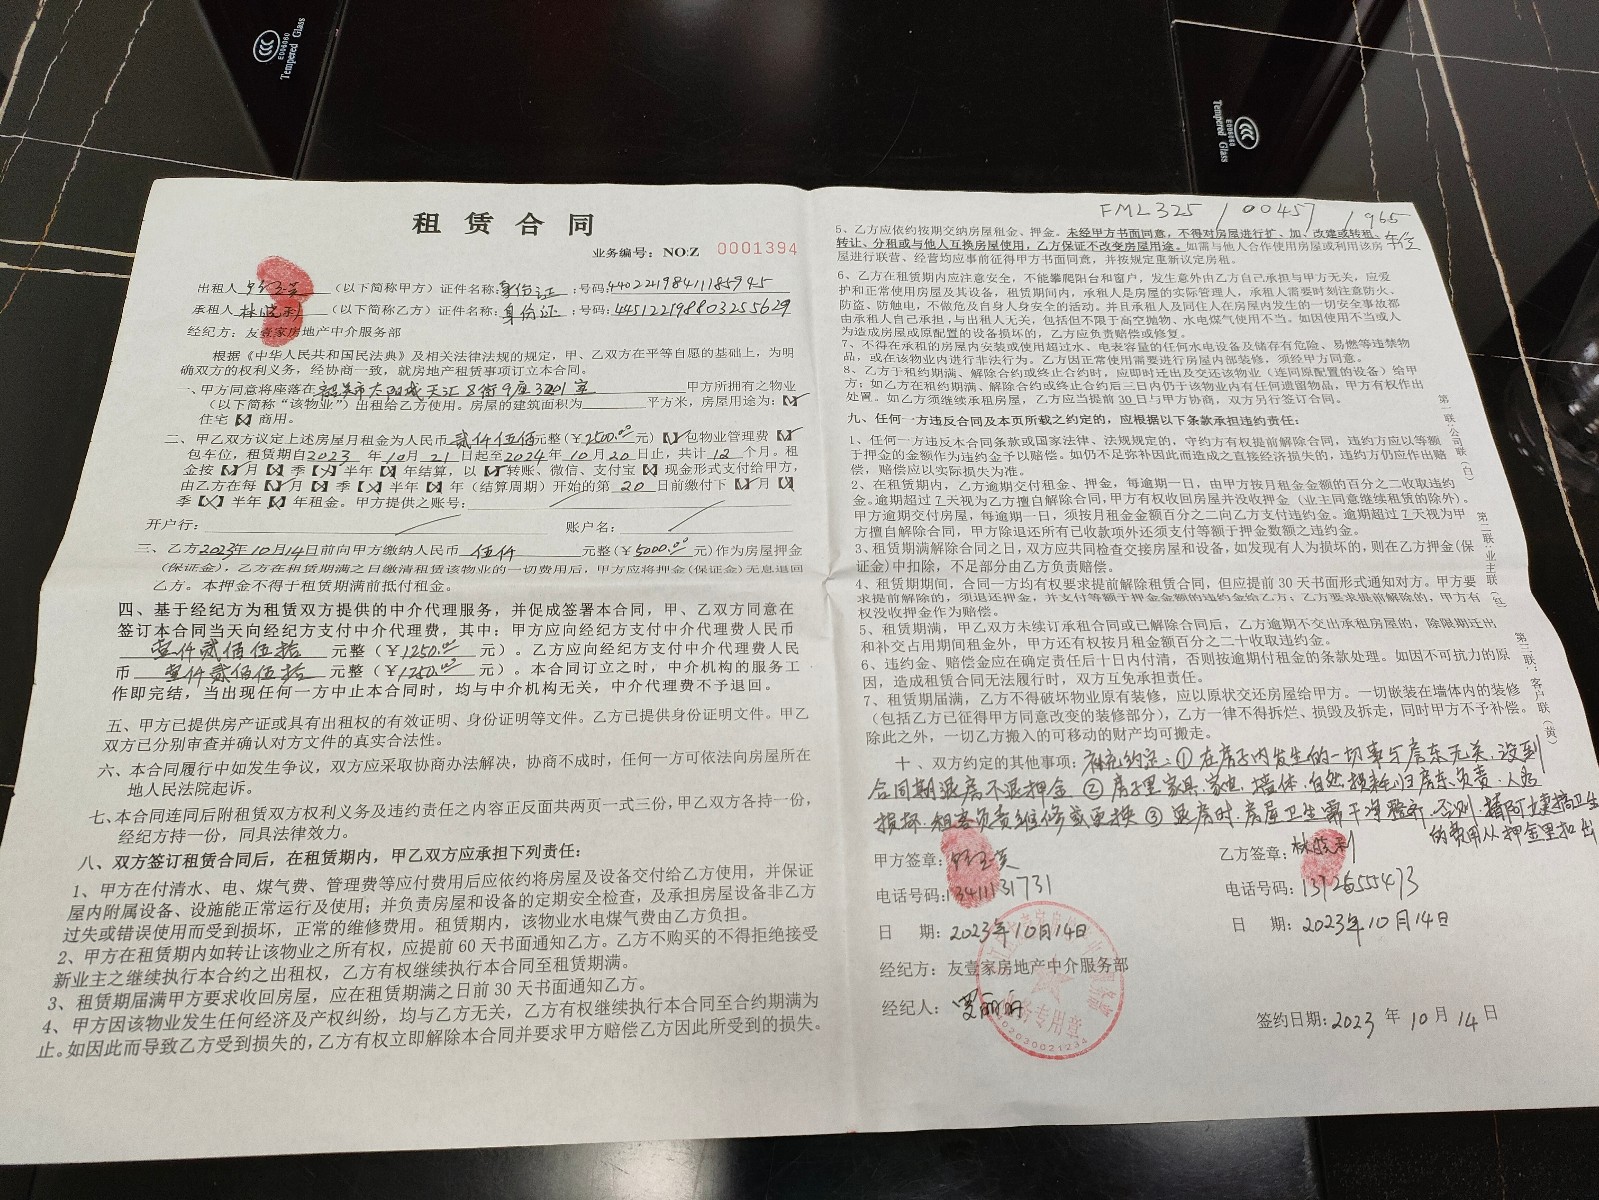 CCC
E006060
Tempered Glass
CCC
E006060
Tempered Glass
租赁合同
业务编号：NO:Z 0001394
出租人 （以下简称甲方）证件名称:身份证 ;号码:
承租人 （以下简称乙方）证件名称:身份证 ;号码:445122198803255629
经纪方：友壹家房地产中介服务部
根据《中华人民共和国民法典》及相关法律法规的规定，甲、乙双方在平等自愿的基础上，为明
确双方的权利义务，经协商一致，就房地产租赁事项订立本合同。
一、甲方同意将座落在韶关市太阳城天汇8街9座3201室 甲方所拥有之物业
（以下简称“该物业”）出租给乙方使用。房屋的建筑面积为 平方米，房屋用途为：【✓】
住宅【×】商用。
二、甲乙双方议定上述房屋月租金为人民币 贰仟伍佰元整（￥2500.00元）【✓】包物业管理费【✓】
包车位，租赁期自2023 年10月21日起至2024年10月20日止，共计12个月。租
金按【✓】月【×】季【×】半年【×】年结算，以【✓】转账、微信、支付宝【×】现金形式支付给甲方，
由乙方在每【✓】月【×】季【×】半年【×】年（结算周期）开始的第 20 日前缴付下【✓】月【×】
季【×】半年【×】年租金。甲方提供之账号：
开户行： 账户名：
三、乙方2023年10月14日前向甲方缴纳人民币 伍仟 元整(￥5000.00元)作为房屋押金
(保证金)，乙方在租赁期满之日缴清租赁该物业的一切费用后，甲方应将押金(保证金)无息退回
乙方。本押金不得于租赁期满前抵付租金。
四、基于经纪方为租赁双方提供的中介代理服务，并促成签署本合同，甲、乙双方同意在
签订本合同当天向经纪方支付中介代理费，其中：甲方应向经纪方支付中介代理费人民币
壹仟贰佰伍拾 元整（￥1250.00元）。乙方应向经纪方支付中介代理费人民
币 壹仟贰佰伍拾 元整（￥1250.00元）。本合同订立之时，中介机构的服务工
作即完结，当出现任何一方中止本合同时，均与中介机构无关，中介代理费不予退回。
五、甲方已提供房产证或具有出租权的有效证明、身份证明等文件。乙方已提供身份证明文件。甲乙
双方已分别审查并确认对方文件的真实合法性。
六、本合同履行中如发生争议，双方应采取协商办法解决，协商不成时，任何一方可依法向房屋所在
地人民法院起诉。
七、本合同连同后附租赁双方权利义务及违约责任之内容正反面共两页一式三份，甲乙双方各持一份，
经纪方持一份，同具法律效力。
八、双方签订租赁合同后，在租赁期内，甲乙双方应承担下列责任：
1、甲方在付清水、电、煤气费、管理费等应付费用后应依约将房屋及设备交付给乙方使用，并保证
屋内附属设备、设施能正常运行及使用；并负责房屋和设备的定期安全检查，及承担房屋设备非乙方
过失或错误使用而受到损坏，正常的维修费用。租赁期内，该物业水电煤气费由乙方负担。
2、甲方在租赁期内如转让该物业之所有权，应提前60天书面通知乙方。乙方不购买的不得拒绝接受
新业主之继续执行本合约之出租权，乙方有权继续执行本合同至租赁期满。
3、租赁期届满甲方要求收回房屋，应在租赁期满之日前30天书面通知乙方。
4、甲方因该物业发生任何经济及产权纠纷，均与乙方无关，乙方有权继续执行本合同至合约期满为
止。如因此而导致乙方受到损失的，乙方有权立即解除本合同并要求甲方赔偿乙方因此所受到的损失。
FML325 / 00457 / 965
5、乙方应依约按期交纳房屋租金、押金。未经甲方书面同意，不得对房屋进行扩、加、改建或转租、
转让、分租或与他人互换房屋使用，乙方保证不改变房屋用途。如需与他人合作使用房屋或利用该房
屋进行联营、经营均应事前征得甲方书面同意，并按规定重新议定房租。
6、乙方在租赁期内应注意安全，不能攀爬阳台和窗户，发生意外由乙方自己承担与甲方无关，应爱
护和正常使用房屋及其设备，租赁期间内，承租人是房屋的实际管理人，承租人需要时刻注意防火、
防盗、防触电，不做危及自身人身安全的活动。并且承租人及同住人在房屋内发生的一切安全事故都
由承租人自己承担，与出租人无关，包括但不限于高空抛物、水电煤气使用不当。如因使用不当或人
为造成房屋或原配置的设备损坏的，乙方应负责赔偿或修复。
7、不得在承租的房屋内安装或使用超过水、电表容量的任何水电设备及储存有危险、易燃等违禁物
品，或在该物业内进行非法行为。乙方因正常使用需要进行房屋内部装修，须经甲方同意。
8、乙方于租约期满、解除合约或终止合约时，应即时迁出及交还该物业（连同原配置的设备）给甲
方；如乙方在租约期满、解除合约或终止合约后三日内仍于该物业内有任何遗留物品，甲方有权作出
处置。如乙方须继续承租房屋，乙方应当提前30日与甲方协商，双方另行签订合同。
九、任何一方违反合同及本页所载之约定的，应根据以下条款承担违约责任：
1、任何一方违反本合同条款或国家法律、法规规定的，守约方有权提前解除合同，违约方应以等额
于押金的金额作为违约金予以赔偿。如仍不足弥补因此而造成之直接经济损失的，违约方仍应作出赔
偿，赔偿应以实际损失为准。
2、在租赁期内，乙方逾期交付租金、押金，每逾期一日，由甲方按月租金金额的百分之二收取违约
金。逾期超过7天视为乙方擅自解除合同，甲方有权收回房屋并没收押金（业主同意继续租赁的除外）。
甲方逾期交付房屋，每逾期一日，须按月租金金额百分之二向乙方支付违约金。逾期超过7天视为甲
方擅自解除合同，甲方除退还所有已收款项外还须支付等额于押金数额之违约金。
3、租赁期满解除合同之日，双方应共同检查交接房屋和设备，如发现有人为损坏的，则在乙方押金(保
证金)中扣除，不足部分由乙方负责赔偿。
4、租赁期期间，合同一方均有权要求提前解除租赁合同，但应提前30天书面形式通知对方。甲方要
求提前解除的，须退还押金，并支付等额于押金金额的违约金给乙方；乙方要求提前解除的，甲方有
权没收押金作为赔偿。
5、租赁期满，甲乙双方未续订承租合同或已解除合同后，乙方逾期不交出承租房屋的，除限期迁出
和补交占用期间租金外，甲方还有权按月租金额百分之二十收取违约金。
6、违约金、赔偿金应在确定责任后十日内付清，否则按逾期付租金的条款处理。如因不可抗力的原
因，造成租赁合同无法履行时，双方互免承担责任。
7、租赁期届满，乙方不得破坏物业原有装修，应以原状交还房屋给甲方。一切嵌装在墙体内的装修
（包括乙方已征得甲方同意改变的装修部分），乙方一律不得拆烂、损毁及拆走，同时甲方不予补偿。
除此之外，一切乙方搬入的可移动的财产均可搬走。
十、双方约定的其他事项：补充约定：①在房子内发生的一切事与房东无关，没到
合同期退房不退押金②房子里家具、家电、墙体、自然损耗归房东负责，人为
损坏，租客负责维修或更换③退房时，房屋卫生需干净整齐，否则，请阿姨搞卫生
的费用从押金里扣出
第一联：公司联（白）
第二联：业主联（红）
第三联：客户联（黄）
甲方签章：
电话号码:13411131731
日 期：2023年10月14日
经纪方：友壹家房地产中介服务部
经纪人：
乙方签章：
电话号码:13726555473
日 期：2023年10月14日
签约日期：2023 年 10 月 14 日
业务专用章